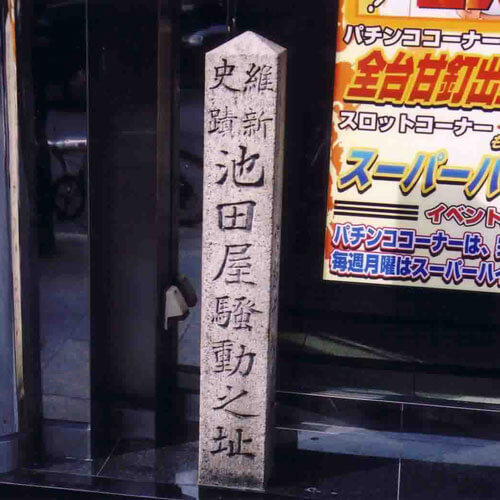 維新
史蹟
池田屋騒動之址
パチンココーナー
全台甘釘出
スロットコーナー
スーパーハ
イベント
パチンココーナーは、
毎週月曜はスーパーハイ